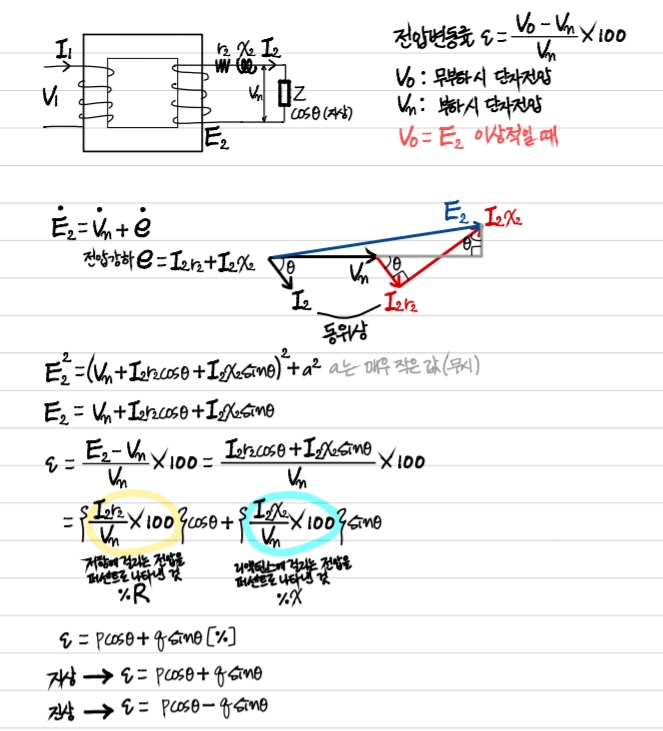 I₁ r₂ x₂ I₂
V₁ Vₙ Z
cosθ(지상)
E₂
전압변동률 ε = (V₀ - Vₙ)/Vₙ × 100
V₀ : 무부하시 단자전압
Vₙ : 부하시 단자전압
V₀ = E₂ 이상적일 때
Ė₂ = V̇ₙ + ė
전압강하 e = I₂r₂ + I₂x₂
E₂ I₂x₂
θ
θ Vₙ θ
I₂ I₂r₂
동위상
E₂² = (Vₙ + I₂r₂cosθ + I₂x₂sinθ)² + a² a는 매우 작은 값(무시)
E₂ = Vₙ + I₂r₂cosθ + I₂x₂sinθ
ε = (E₂ - Vₙ)/Vₙ × 100 = (I₂r₂cosθ + I₂x₂sinθ)/Vₙ × 100
= {I₂r₂/Vₙ × 100}cosθ + {I₂x₂/Vₙ × 100}sinθ
저항에 걸리는 전압을
퍼센트로 나타낸 것
%R
리액턴스에 걸리는 전압을
퍼센트로 나타낸 것
%X
ε = pcosθ + qsinθ [%]
지상 → ε = pcosθ + qsinθ
진상 → ε = pcosθ - qsinθ